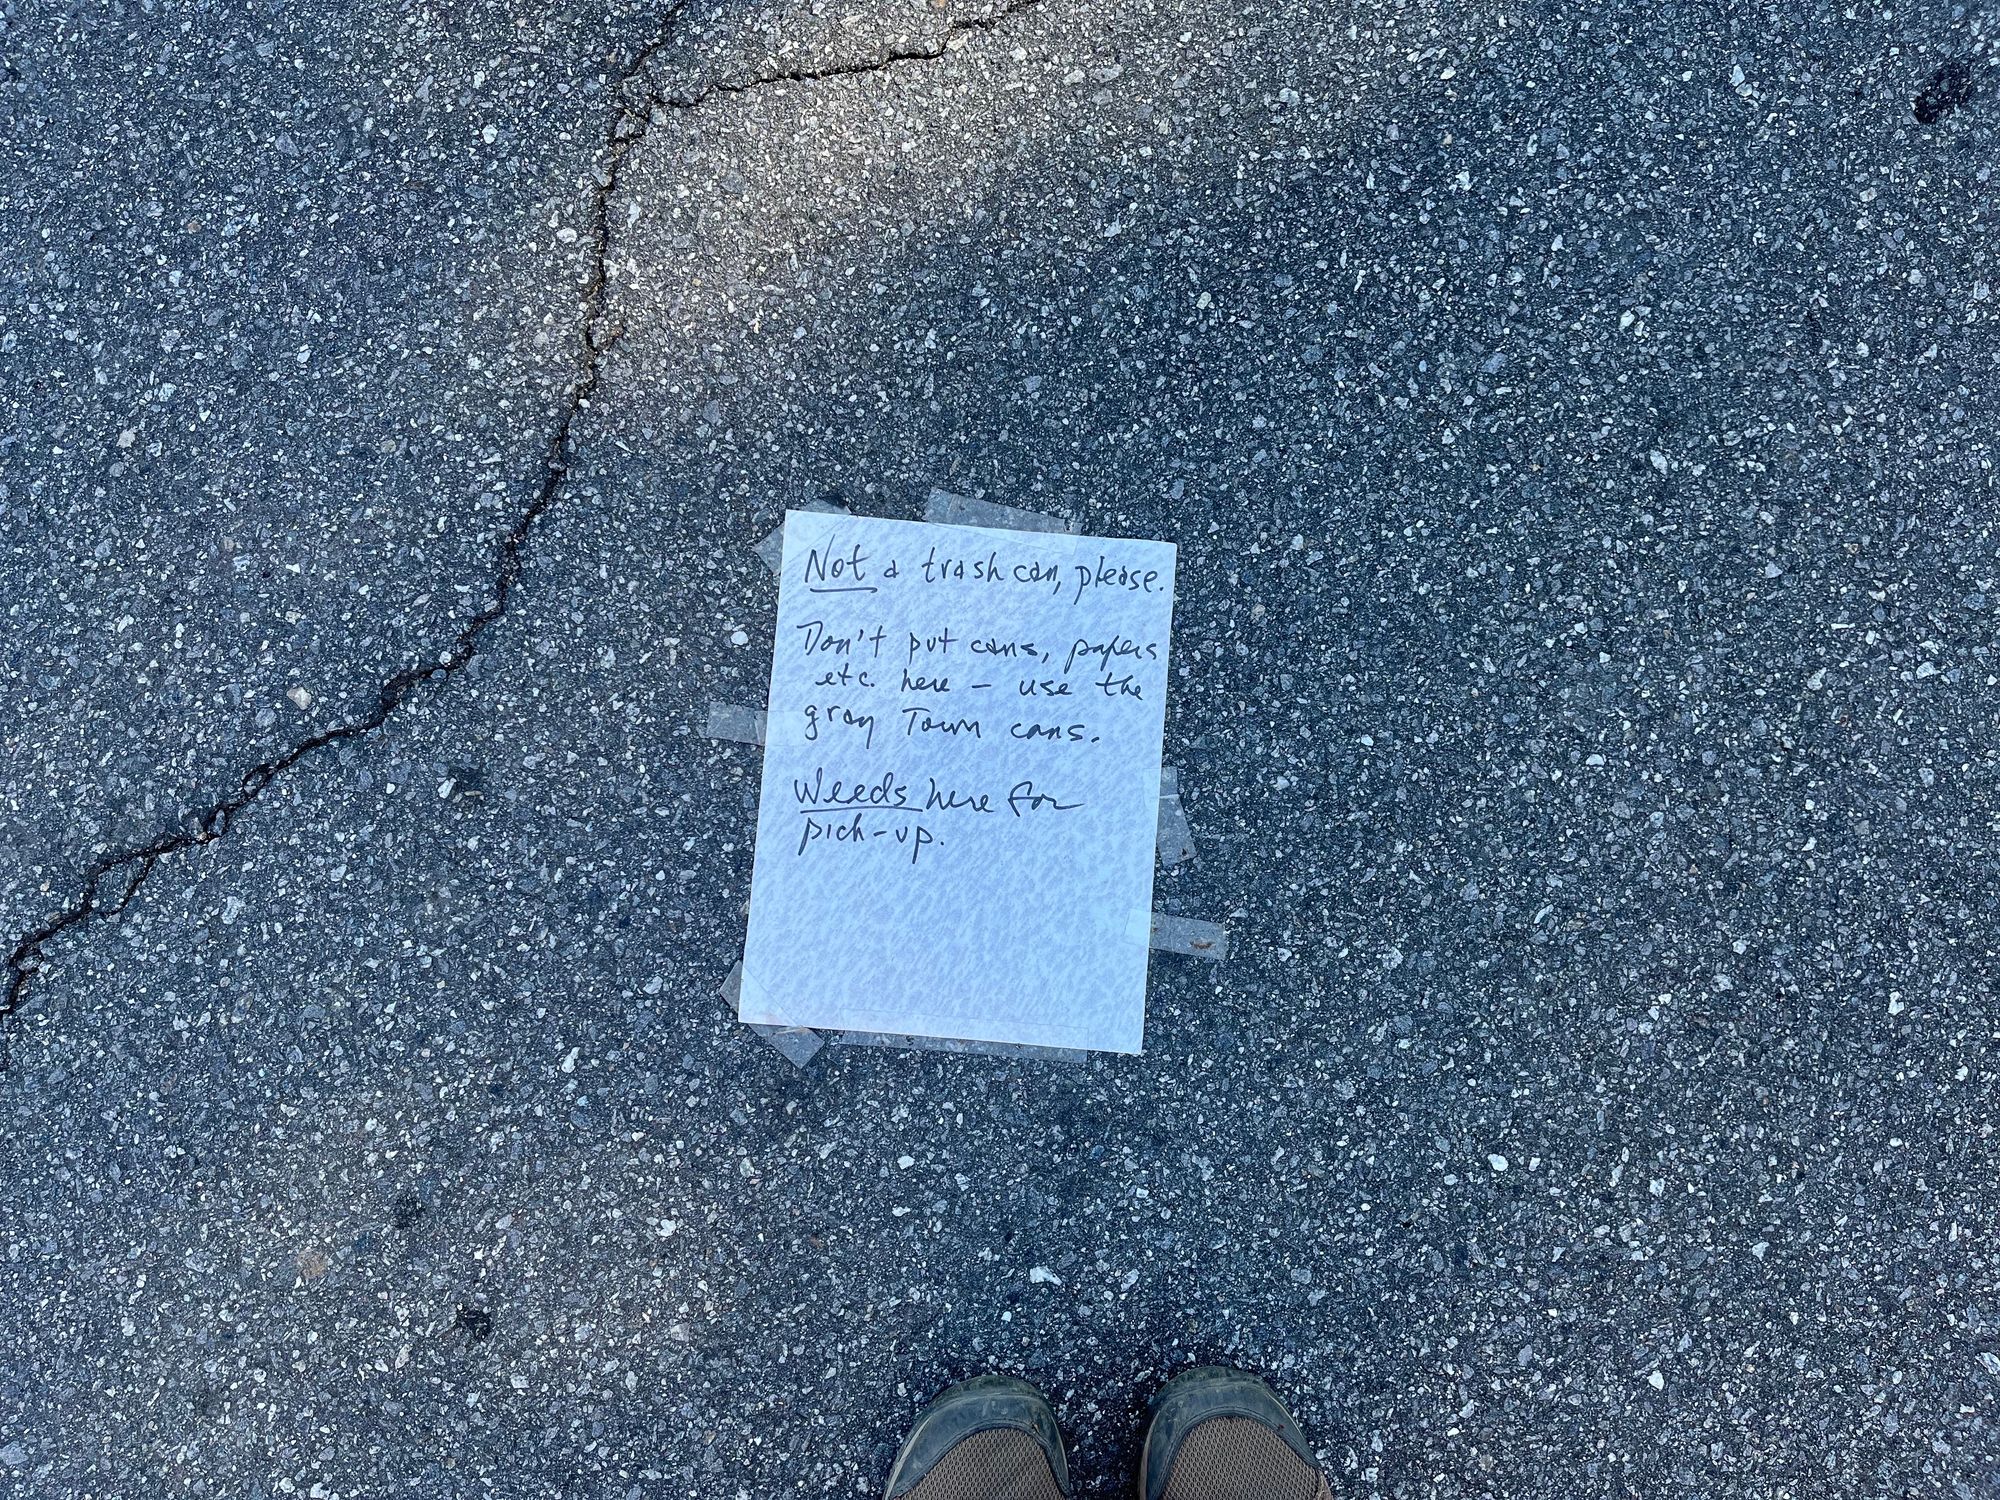 Not a trash can, please.
Don't put cans, papers
etc. here – use the
gray Town cans.
Weeds here for
pick-up.